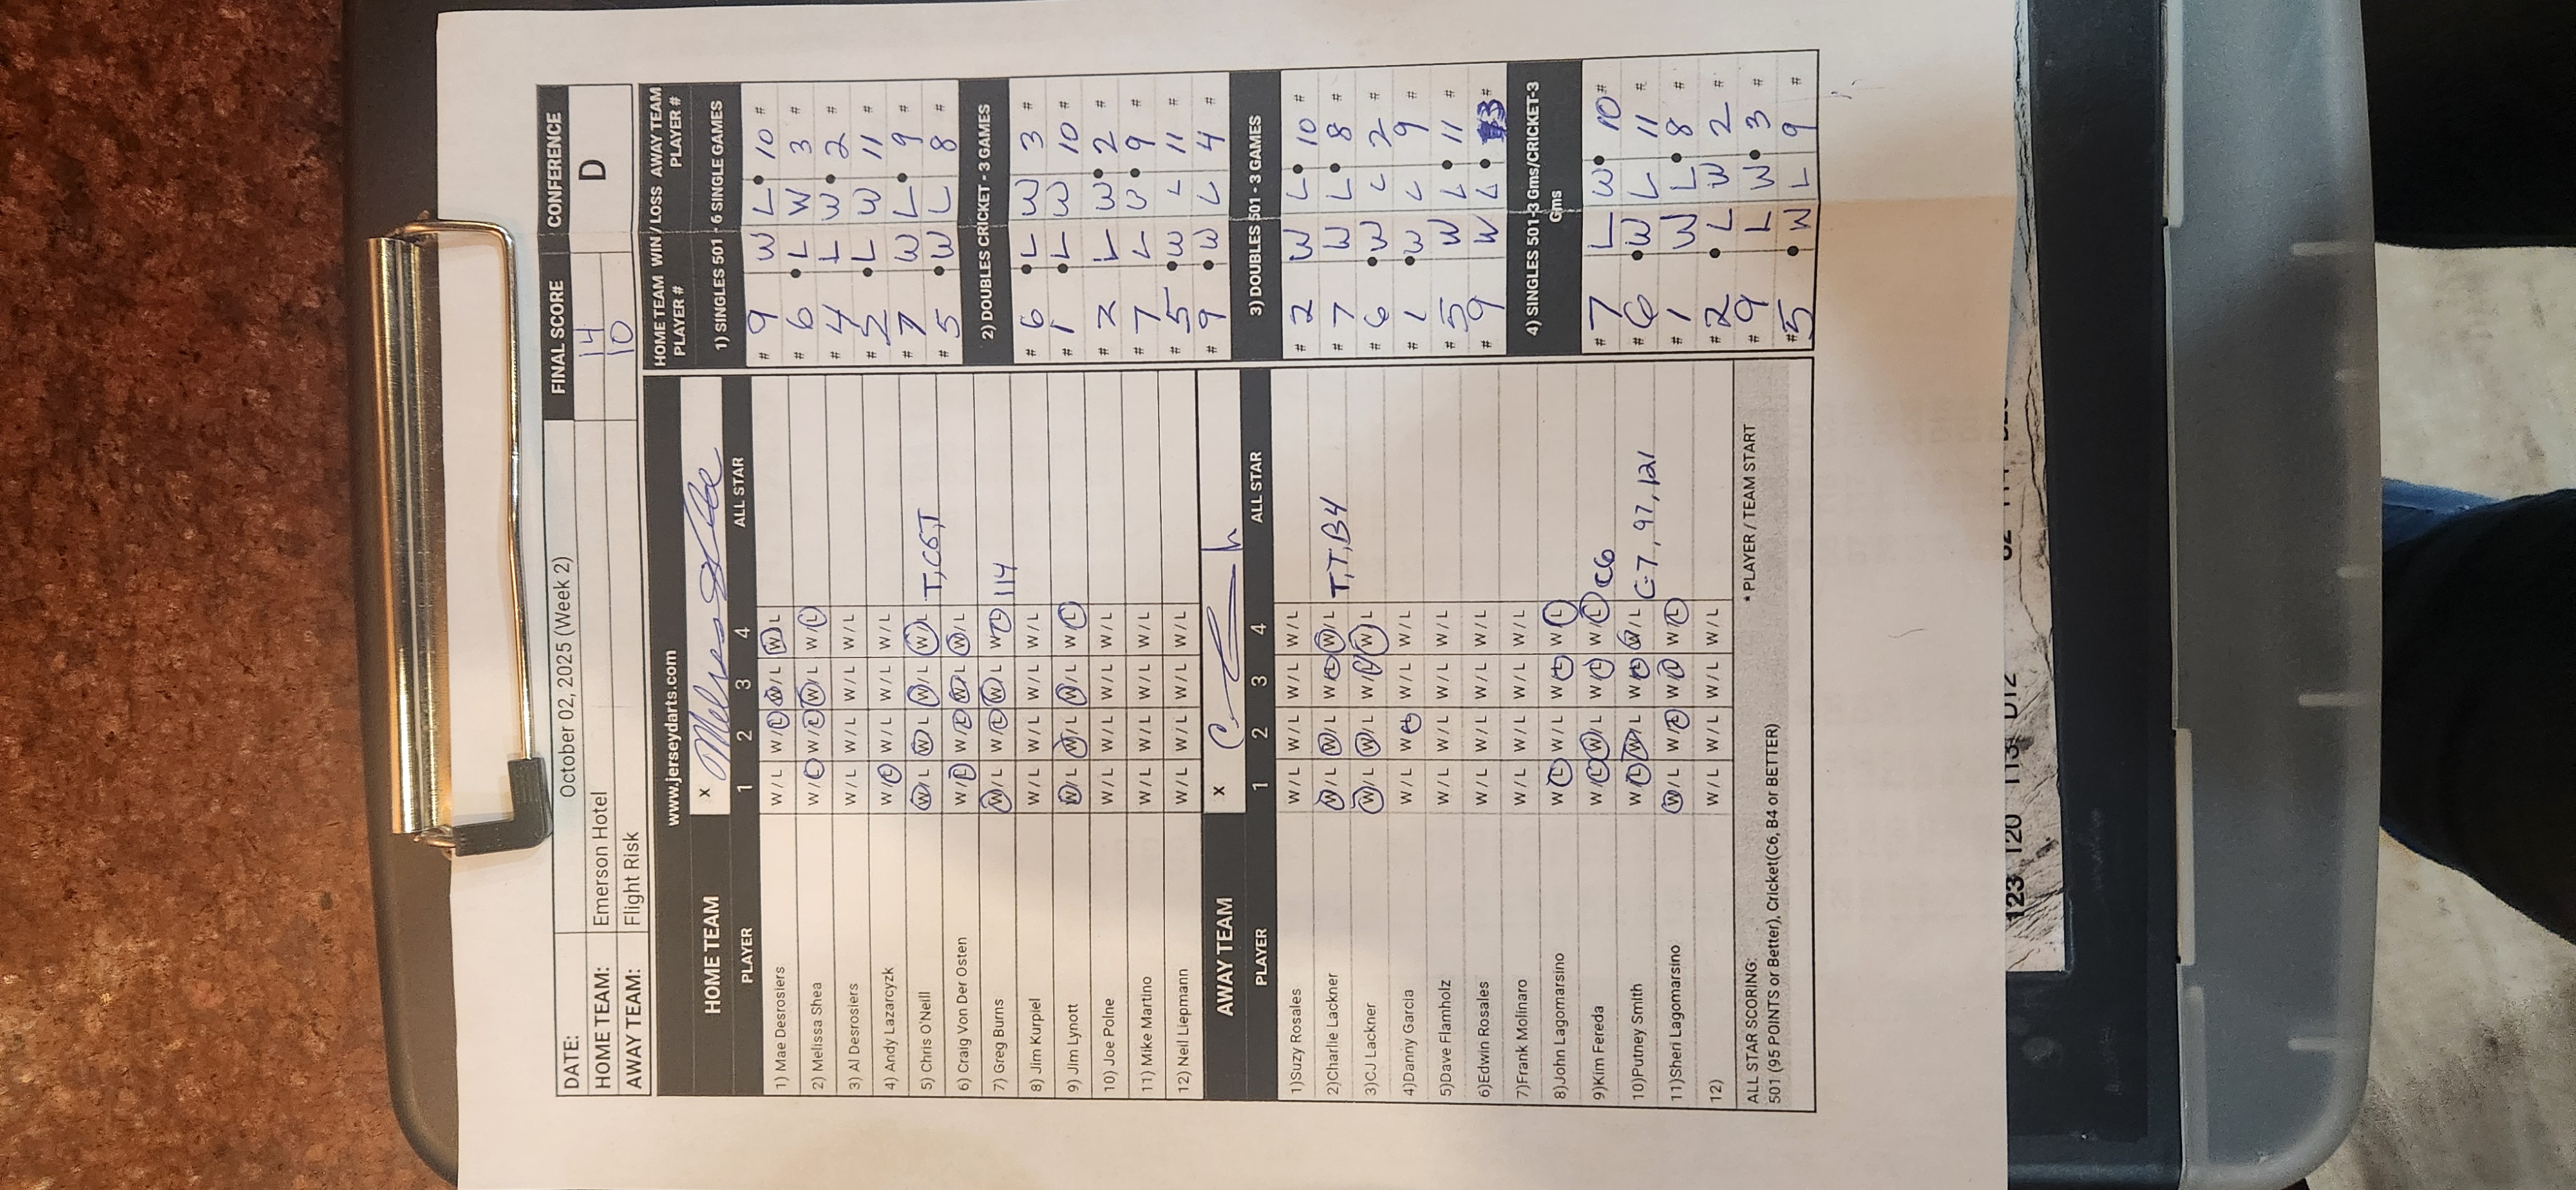 DATE: October 02, 2025 (Week 2) FINAL SCORE CONFERENCE
HOME TEAM: Emerson Hotel 14 D
AWAY TEAM: Flight Risk 10
www.jerseydarts.com
HOME TEAM X
PLAYER 1 2 3 4 ALL STAR
1) Mae Desrosiers W/L W/L W/L W/L
2) Melissa Shea W/L W/L W/L W/L
3) Al Desrosiers W/L W/L W/L W/L
4) Andy Lazarcyzk W/L W/L W/L W/L
5) Chris O'Neill W/L W/L W/L W/L T,C6,T
6) Craig Von Der Osten W/L W/L W/L W/L
7) Greg Burns W/L W/L W/L W/L 114
8) Jim Kurpiel W/L W/L W/L W/L
9) Jim Lynott W/L W/L W/L W/L
10) Joe Polne W/L W/L W/L W/L
11) Mike Martino W/L W/L W/L W/L
12) Neil Liepmann W/L W/L W/L W/L
AWAY TEAM X
PLAYER 1 2 3 4 ALL STAR
1)Suzy Rosales W/L W/L W/L W/L
2)Charlie Lackner W/L W/L W/L W/L T,T,B4
3)CJ Lackner W/L W/L W/L W/L
4)Danny Garcia W/L W/L W/L W/L
5)Dave Flamholz W/L W/L W/L W/L
6)Edwin Rosales W/L W/L W/L W/L
7)Frank Molinaro W/L W/L W/L W/L
8)John Lagomarsino W/L W/L W/L W/L
9)Kim Fereda W/L W/L W/L W/L C6
10)Putney Smith W/L W/L W/L W/L C-7, 97, 121
11)Sheri Lagomarsino W/L W/L W/L W/L
12) W/L W/L W/L W/L
ALL STAR SCORING: * PLAYER / TEAM START
501 (95 POINTS or Better), Cricket(C6, B4 or BETTER)
HOME TEAM WIN / LOSS AWAY TEAM
PLAYER # PLAYER #
1) SINGLES 501 - 6 SINGLE GAMES
# 9 W L 10 #
# 6 L W 3 #
# 4 L W 2 #
# 2 L W 11 #
# 7 W L 9 #
# 5 W L 8 #
2) DOUBLES CRICKET - 3 GAMES
# 6 L W 3 #
# 1 L W 10 #
# 2 L W 2 #
# 7 L W 9 #
# 5 W L 11 #
# 9 W L 4 #
3) DOUBLES 501 - 3 GAMES
# 2 W L 10 #
# 7 W L 8 #
# 6 W L 2 #
# 1 W L 9 #
# 5 W L 11 #
# 9 W L 3 #
4) SINGLES 501-3 Gms/CRICKET-3
Gms
# 7 L W 10 #
# 6 W L 11 #
# 1 W L 8 #
# 2 L W 2 #
# 9 L W 3 #
# 5 W L 9 #
123 120